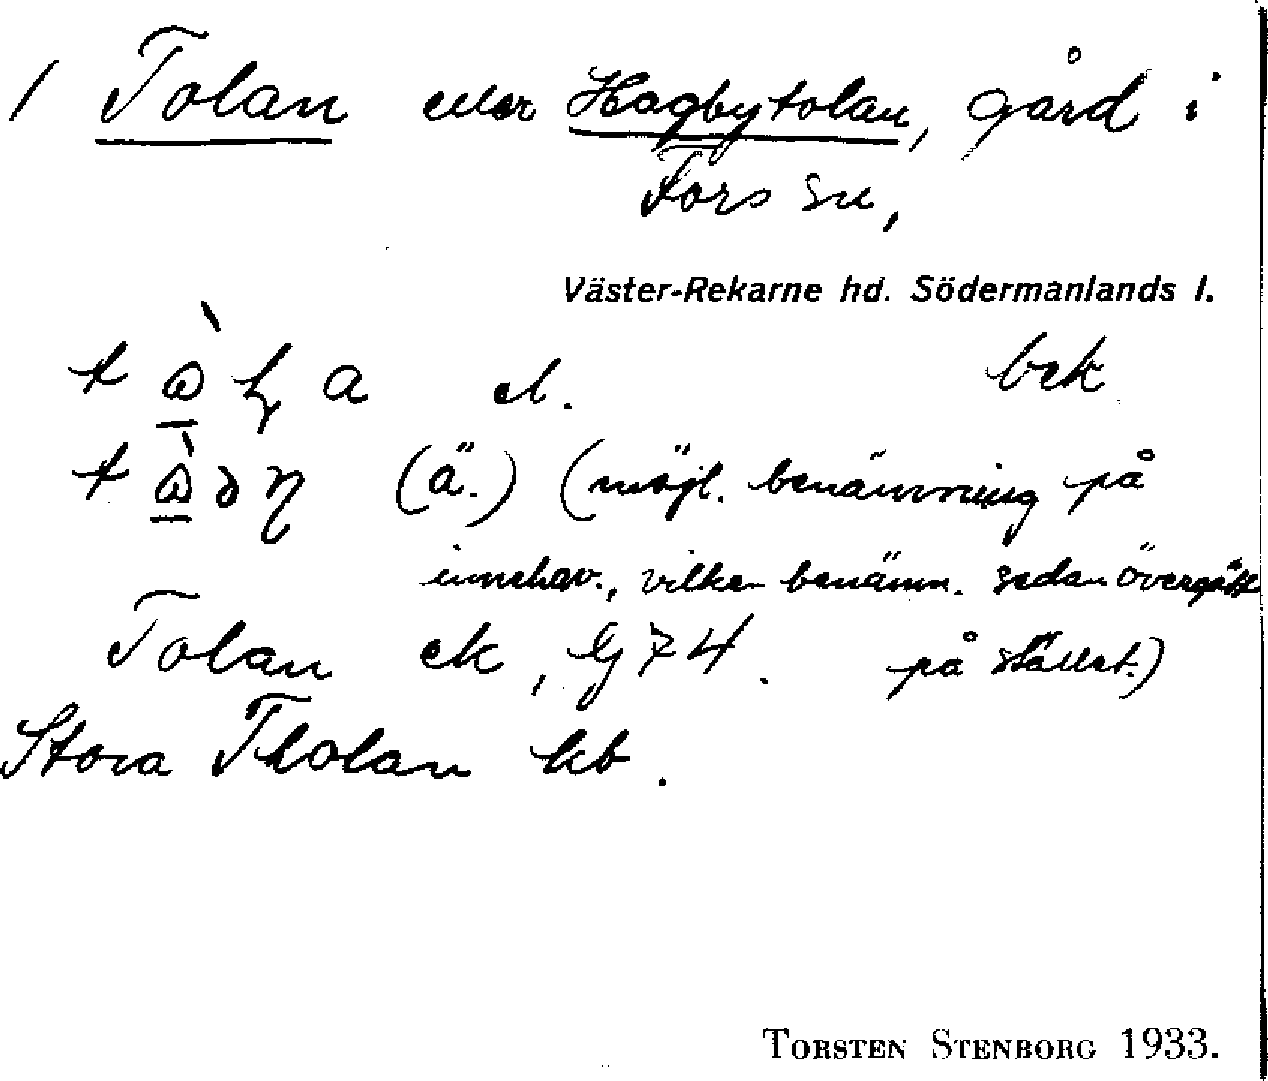 1 Tolan eller Hagbytolan, gård i
Fors sn,
Väster-Rekarne hd. Södermanlands l.
el. bek
(ä.) (möjl. benämning på
innehav., vilken benämn. sedan övergått
Tolan ek, G 74. på stället.)
Stora Tholan kb.
TORSTEN STENBORG 1933.